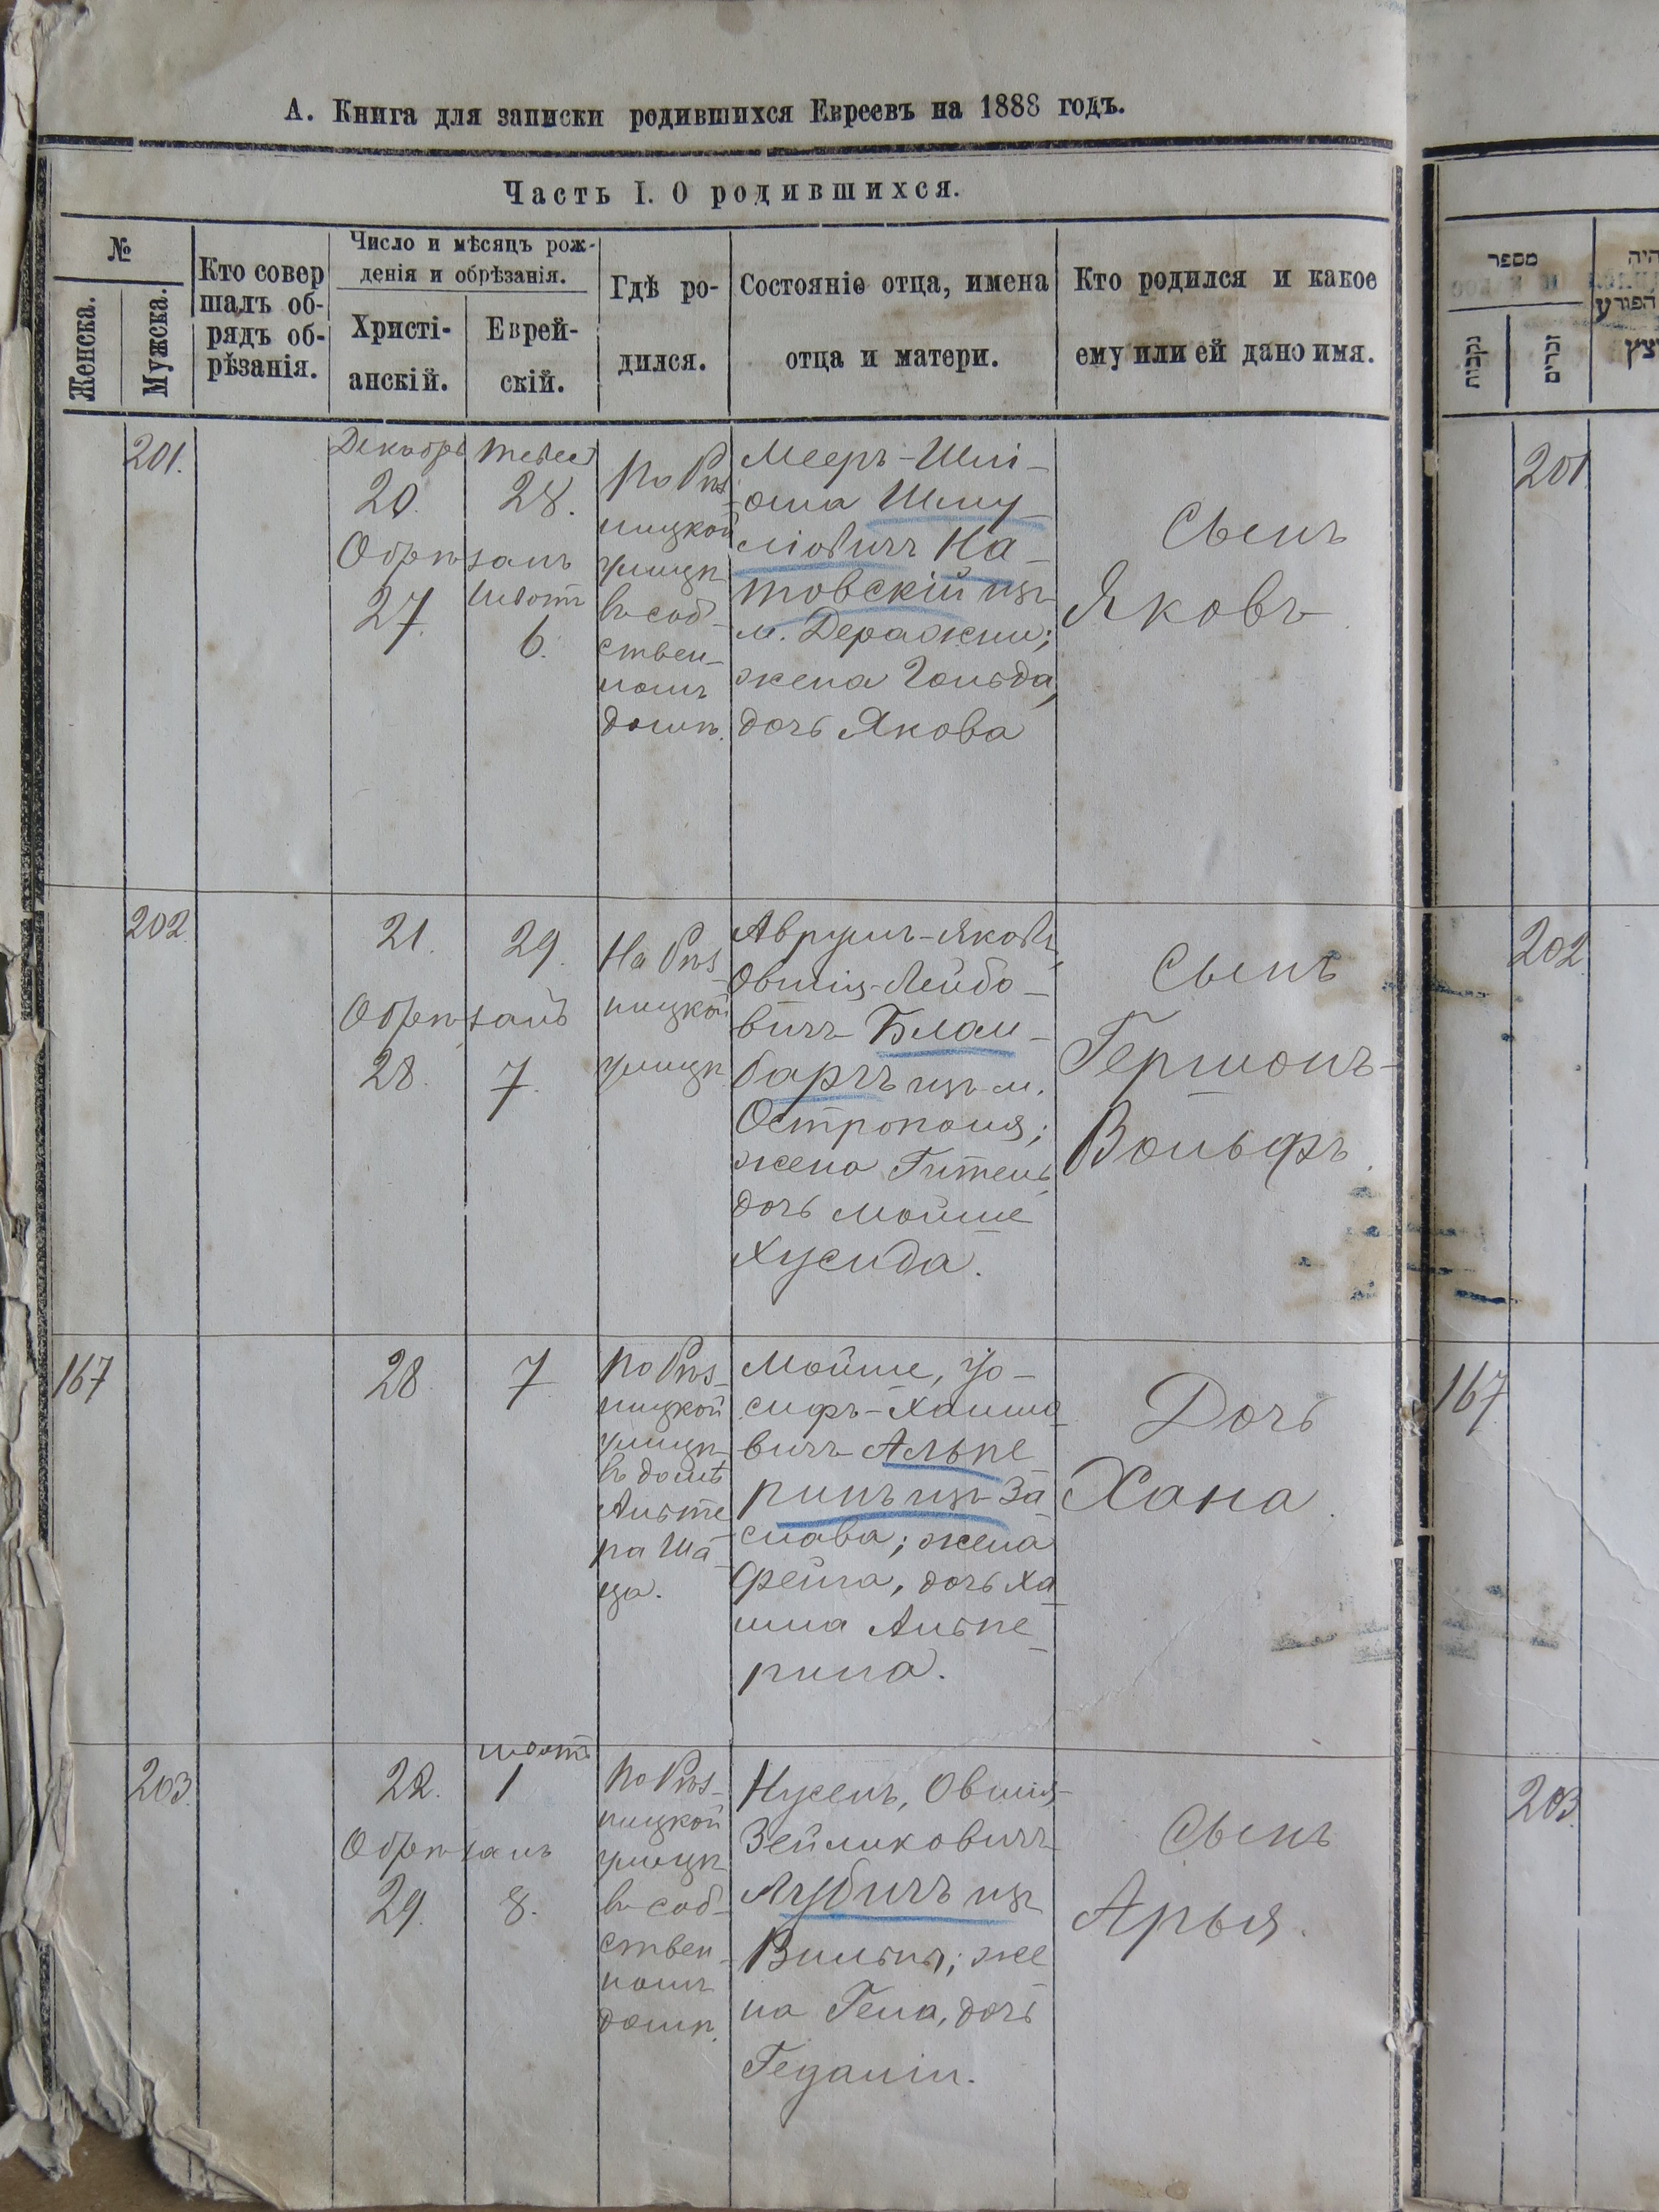 А. Книга для записки родившихся Евреевъ на 1888 годъ.
Часть I. О родившихся.
№
Женска.
Мужска.
Кто совер
шалъ об-
рядъ об-
рѣзанія.
Число и мѣсяцъ рож-
денія и обрѣзанія.
Христі-
анскій.
Еврей-
скій.
Гдѣ ро-
дился.
Состояніе отца, имена
отца и матери.
Кто родился и какое
ему или ей дано имя.
מספר
נקבות
זכרים
201.
Декабрь
20.
Тевес
28.
Обрѣзанъ
27.
Шватъ
6.
ницкой
улицѣ
въ соб-
ствен-
номъ
домѣ.
Мееръ-Шлі-
ома Шму-
ліовичъ На-
товскій изъ
м. Деражни;
жена Гольда,
дочь Якова
Сынъ
Яковъ.
201.
202.
21.
29.
Обрѣзанъ
28.
7.
На
ницкой
улицѣ
Аврумъ-Яковъ,
Овшія-Лейбо-
вичъ Блаи-
баргъ изъ м.
Острополя;
жена Гитель,
дочь Мойше
Хусида.
Сынъ
Гершонъ-
Вольфъ.
202.
167
28.
7
ницкой
улицѣ
въ домѣ
Альте
ра Ша-
ца.
Мойше, Іо-
сифъ-Хаимо-
вичъ Альпе-
ринъ изъ За-
слава; жена
Фейга, дочь Ха-
има Альпе-
рина.
Дочь
Хана.
167.
203.
22.
Шватъ
1
Обрѣзанъ
29.
8.
ницкой
улицѣ
въ соб-
ствен-
номъ
домѣ.
Нусенъ, Овшія-
Зейликовичъ
Лубичъ изъ
Вильны; же-
на Гена, дочь
Гедаліи.
Сынъ
Арья.
203.